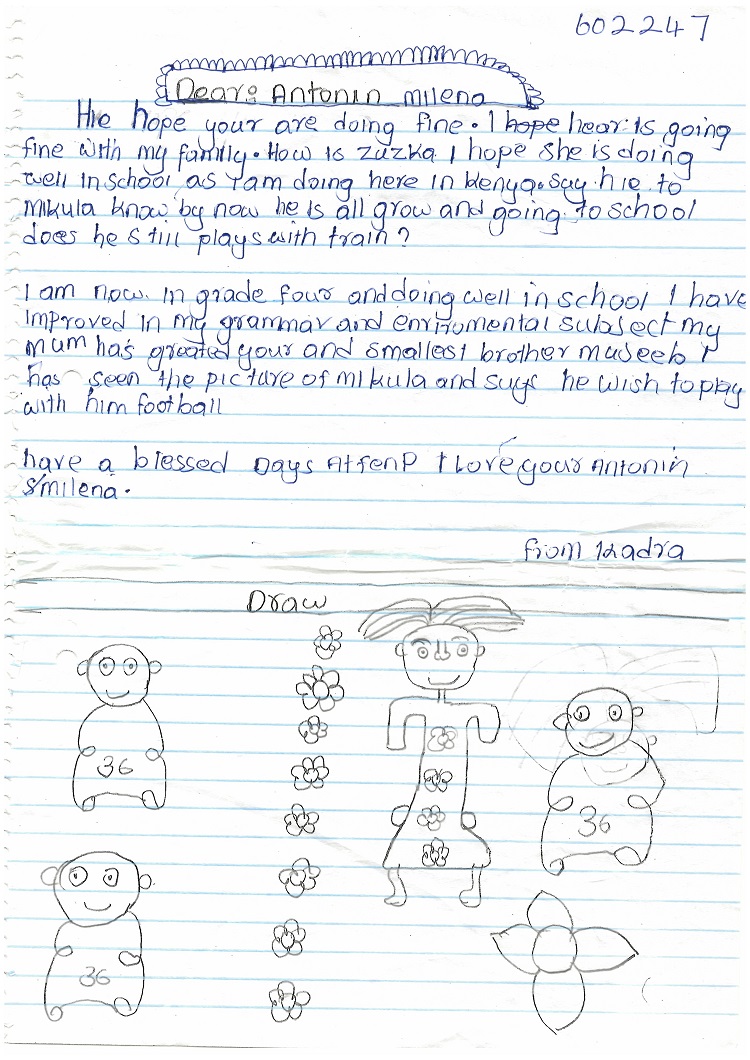 602247
Dear: Antonin milena
Hie hope your are doing fine. I hope hear is going
fine with my family. How is zuzka I hope she is doing
well in school as I am doing here in kenya. say hie to
mikula know by now he is all grow and going to school
does he still plays with train?
I am now in grade four and doing well in school I have
improved in my grammar and enviromental subject my
mum has greated your and smallest brother mujeeb
has seen the picture of mikula and says he wish to play
with him football
have a blessed Days I love your Antonin
&milena.
from khadra
Draw
36
36
36